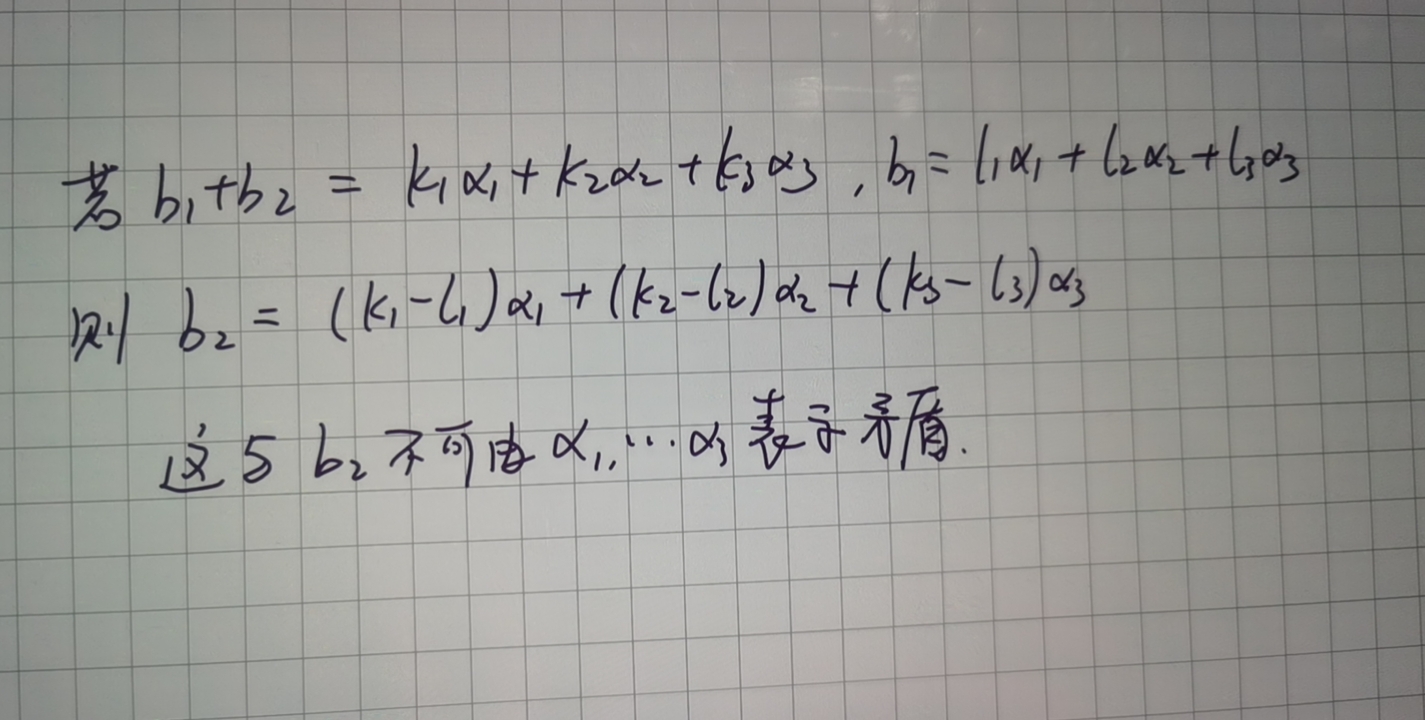 若 b₁+b₂ = k₁α₁+k₂α₂+k₃α₃ , b₁= l₁α₁+l₂α₂+l₃α₃
则 b₂= (k₁-l₁)α₁+(k₂-l₂)α₂+(k₃-l₃)α₃
这与 b₂不可由 α₁,…α₃ 表示矛盾.